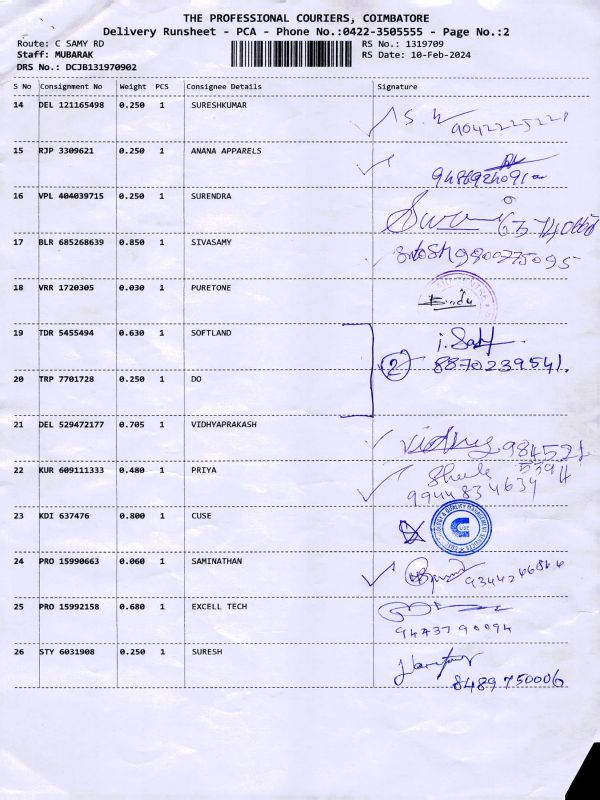 THE PROFESSIONAL COURIERS, COIMBATORE
Delivery Runsheet - PCA - Phone No.:0422-3505555 - Page No.:2
Route: C SAMY RD RS No.: 1319709
Staff: MUBARAK RS Date: 10-Feb-2024
DRS No.: DCJB131970902
S No Consignment No Weight PCS Consignee Details Signature
14 DEL 121165498 0.250 1 SURESHKUMAR
15 RJP 3309621 0.250 1 ANANA APPARELS
16 VPL 404039715 0.250 1 SURENDRA
17 BLR 685268639 0.850 1 SIVASAMY
9900775095
18 VRR 1720305 0.030 1 PURETONE
Bindu
19 TDR 5455494 0.630 1 SOFTLAND
2 8870239541.
20 TRP 7701728 0.250 1 DO
21 DEL 529472177 0.705 1 VIDHYAPRAKASH
Vidhya 984521
5394
22 KUR 609111333 0.480 1 PRIYA
9944834634
23 KDI 637476 0.800 1 CUSE
24 PRO 15990663 0.060 1 SAMINATHAN
25 PRO 15992158 0.680 1 EXCELL TECH
9473790094
26 STY 6031908 0.250 1 SURESH
8489750006